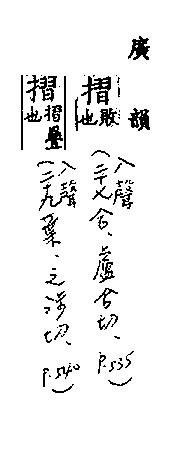 廣韻
摺敗也
(入聲二十七合、盧合切、P.535)
摺摺疊也
(入聲二十九葉、之涉切、P.540)